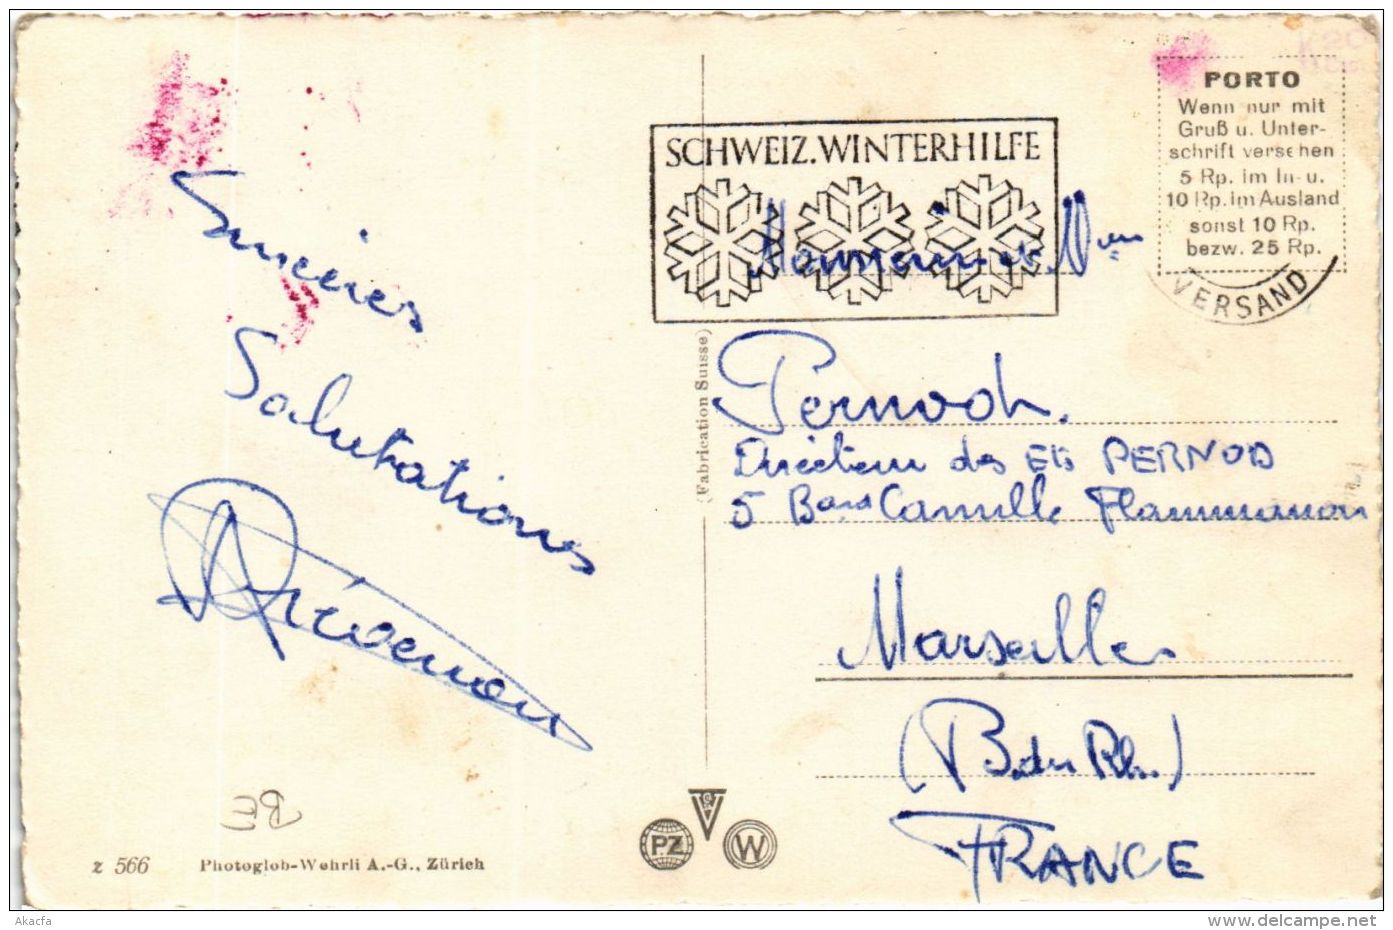 PORTO
Wenn nur mit
Gruß u. Unter-
schrift versehen
5 Rp. im In- u.
10 Rp. im Ausland
sonst 10 Rp.
bezw. 25 Rp.
VERSAND
SCHWEIZ. WINTERHILFE
Sincères
Salutations
Monsieur et
(Fabrication Suisse)
Directeur des Ets PERNOD
5 Bard Camille Flammarion
Marseille
(B. du Rh.)
FRANCE
BE
z 566
Photoglob-Wehrli A.-G., Zürich
PZ
W
Akacfa
www.delcampe.net